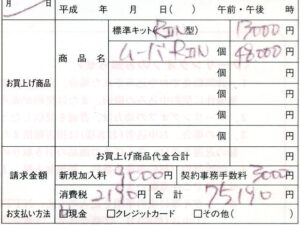 月 日 平成 年 月 日( ) 午前・午後 時
商品名 標準キット(RIIN型) 13000円
ムーバRIIN 個 48000円
お買上げ商品 個 円
個 円
個 円
個 円
お買上げ商品代金合計 円
請求金額 新規加入料 9000円 契約事務手数料 3000円
消費税 2190円 合計 75190円
お支払い方法 □現金 □クレジットカード □その他( )